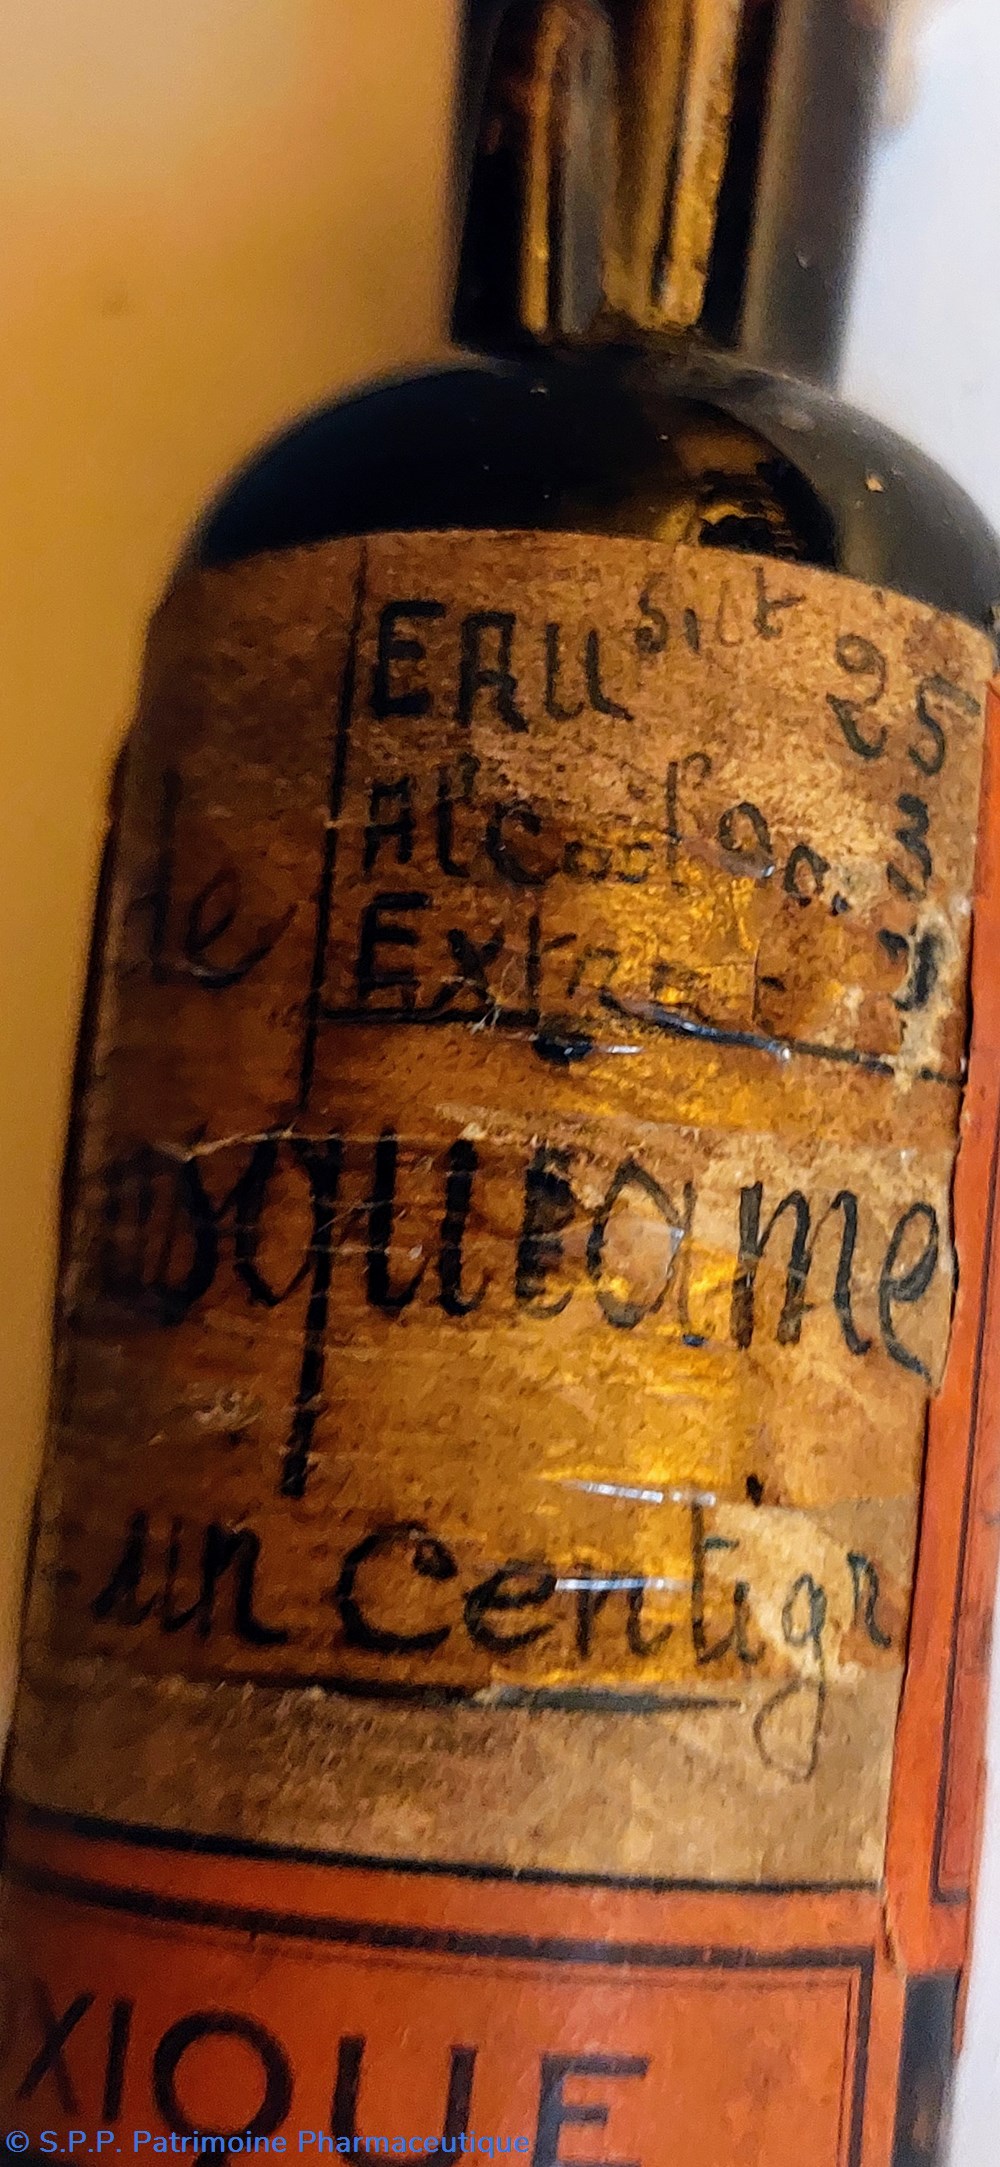 EAU Silt 25
Alcool 90. 3
de
Extra
squiame
un centigr
XIQUE
© S.P.P. Patrimoine Pharmaceutique